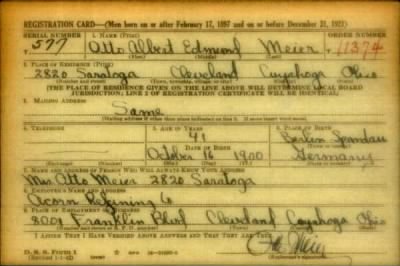 REGISTRATION CARD—(Men born on or after February 17, 1897 and on or before December 31, 1921)
SERIAL NUMBER 1. NAME (Print) ORDER NUMBER
577 Otto Albert Edmond Meier 11374
(First) (Middle) (Last)
2. PLACE OF RESIDENCE (Print)
2820 Saratoga Cleveland Cuyahoga Ohio
(Number and street) (Town, township, village, or city) (County) (State)
[THE PLACE OF RESIDENCE GIVEN ON THE LINE ABOVE WILL DETERMINE LOCAL BOARD
JURISDICTION; LINE 2 OF REGISTRATION CERTIFICATE WILL BE IDENTICAL]
3. MAILING ADDRESS
Same
[Mailing address if other than place indicated on line 2. If same insert word same]
4. TELEPHONE 5. AGE IN YEARS 6. PLACE OF BIRTH
41 Berlin Spandau
DATE OF BIRTH (Town or county)
October 16 1900 Germany
(Exchange) (Number) (Mo.) (Day) (Yr.) (State or country)
7. NAME AND ADDRESS OF PERSON WHO WILL ALWAYS KNOW YOUR ADDRESS
Mrs Otto Meier 2820 Saratoga
8. EMPLOYER'S NAME AND ADDRESS
Acorn Refining Co
9. PLACE OF EMPLOYMENT OR BUSINESS
8001 Franklin Blvd Cleveland Cuyahoga Ohio
(Number and street or R. F. D. number) (Town) (County) (State)
I AFFIRM THAT I HAVE VERIFIED ABOVE ANSWERS AND THAT THEY ARE TRUE.
D. S. S. Form 1
(Registrant's signature)